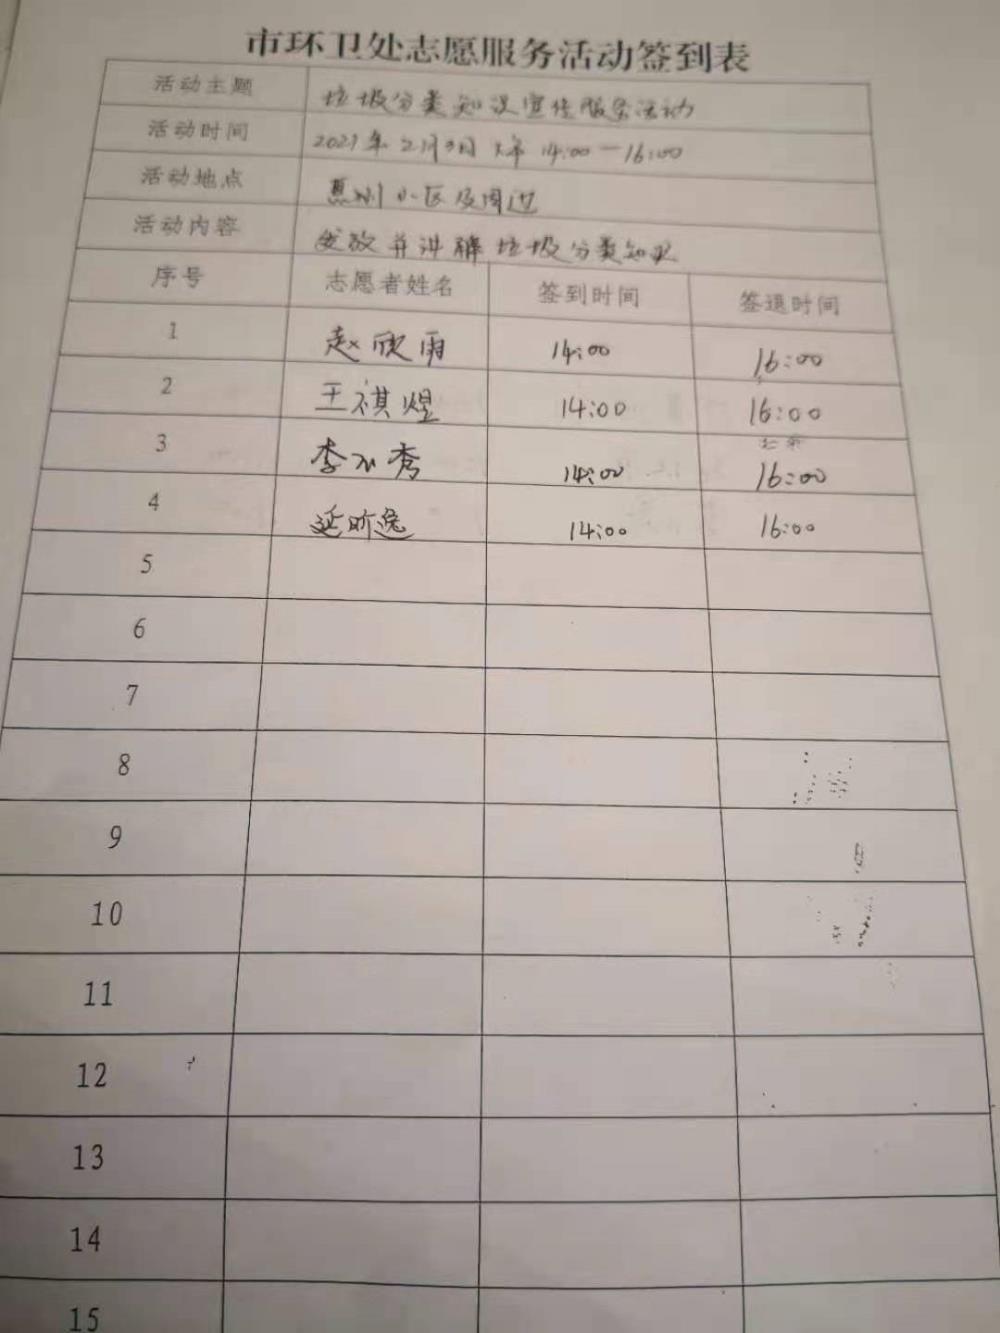 市环卫处志愿服务活动签到表
活动主题 垃圾分类知识宣传服务活动
活动时间 2021年2月3日 下午 14:00—16:00
活动地点 惠州小区及周边
活动内容 发放并讲解垃圾分类知识
序号 志愿者姓名 签到时间 签退时间
1 赵欣雨 14:00 16:00
2 王祺煜 14:00 16:00
3 李 秀 14:00 16:00
4 延昕逸 14:00 16:00
5
6
7
8
9
10
11
12
13
14
15